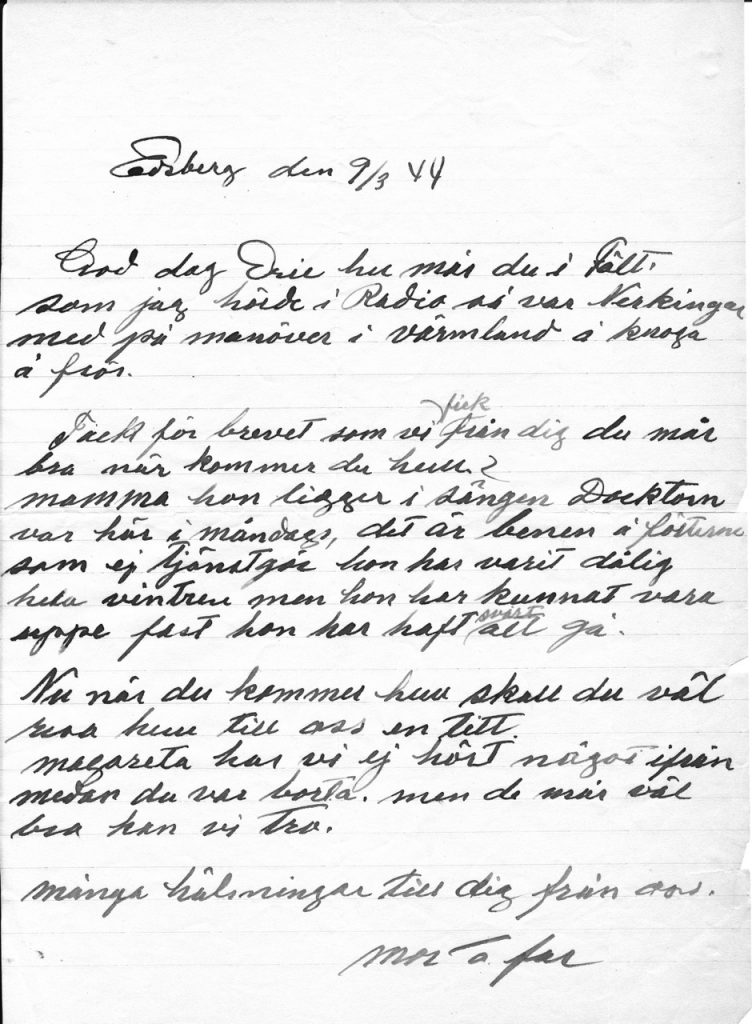 Edsberg den 9/3 44
God dag Eric hur mår du i Fält.
som jag hörde i Radio så var Nerkingar
med på manöver i värmland å kriga
å frös.
Tack för brevet som vi fick från dig du mår
bra när kommer du hem?
mamma hon ligger i sängen Docktorn
var här i måndags, det är benen å fötterna
som ej tjänstgör hon har varit dålig
hela vintren men hon har kunnat vara
uppe fast hon har haft svårt att gå.
Nu när du kommer hem skall du väl
resa hem till oss en titt.
magareta har vi ej hört något ifrån
medan du var borta. men de mår väl
bra kan vi tro.
många hälsningar till dig från oss.
mor å far